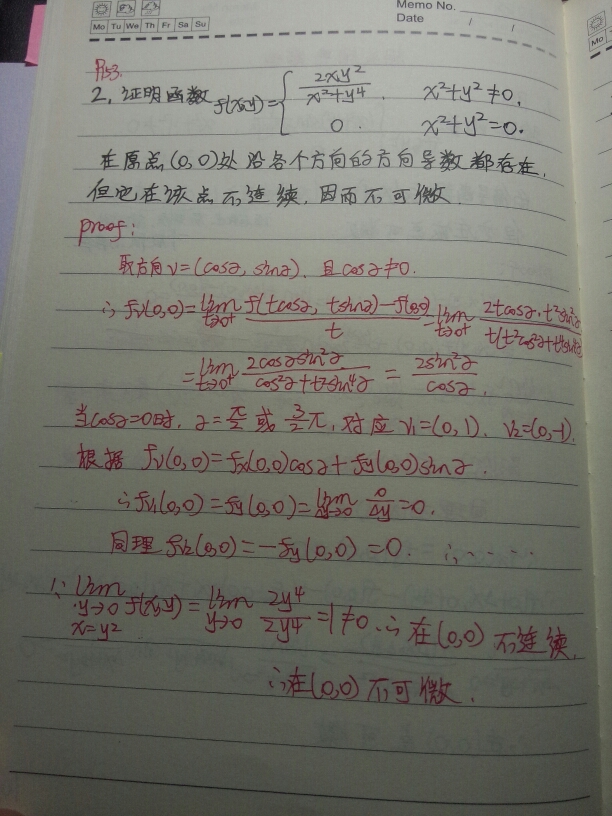 Memo No.
Mo Tu We Th Fr Sa Su
Date / /
P153.
2. 证明函数 f(x,y)={ 2xy²/(x²+y⁴). x²+y²≠0.
0. x²+y²=0.
在原点(0,0)处沿各个方向的方向导数都存在,
但它在该点不连续, 因而不可微.
proof:
取方向 v=(cosα, sinα). 且 cosα≠0.
∴ fv(0,0)=lim t→0⁺ (f(tcosα, tsinα)-f(0,0))/t = lim t→0⁺ (2tcosα·t²sin²α)/(t(t²cos²α+t⁴sin⁴α))
=lim t→0⁺ (2cosαsin²α)/(cos²α+t²sin⁴α) = 2sin²α/cosα.
当cosα=0时, α=π/2 或 3/2π, 对应 v₁=(0,1). v₂=(0,-1).
根据 fv(0,0)=fx(0,0)cosα+fy(0,0)sinα.
∴ fv₁(0,0)=fy(0,0)=lim Δy→0 0/Δy=0.
同理 fv₂(0,0)=-fy(0,0)=0. ∴ ……
∵ lim y→0 x=y² f(x,y)=lim y→0 2y⁴/2y⁴=1≠0. ∴ 在(0,0) 不连续.
∴在(0,0) 不可微.